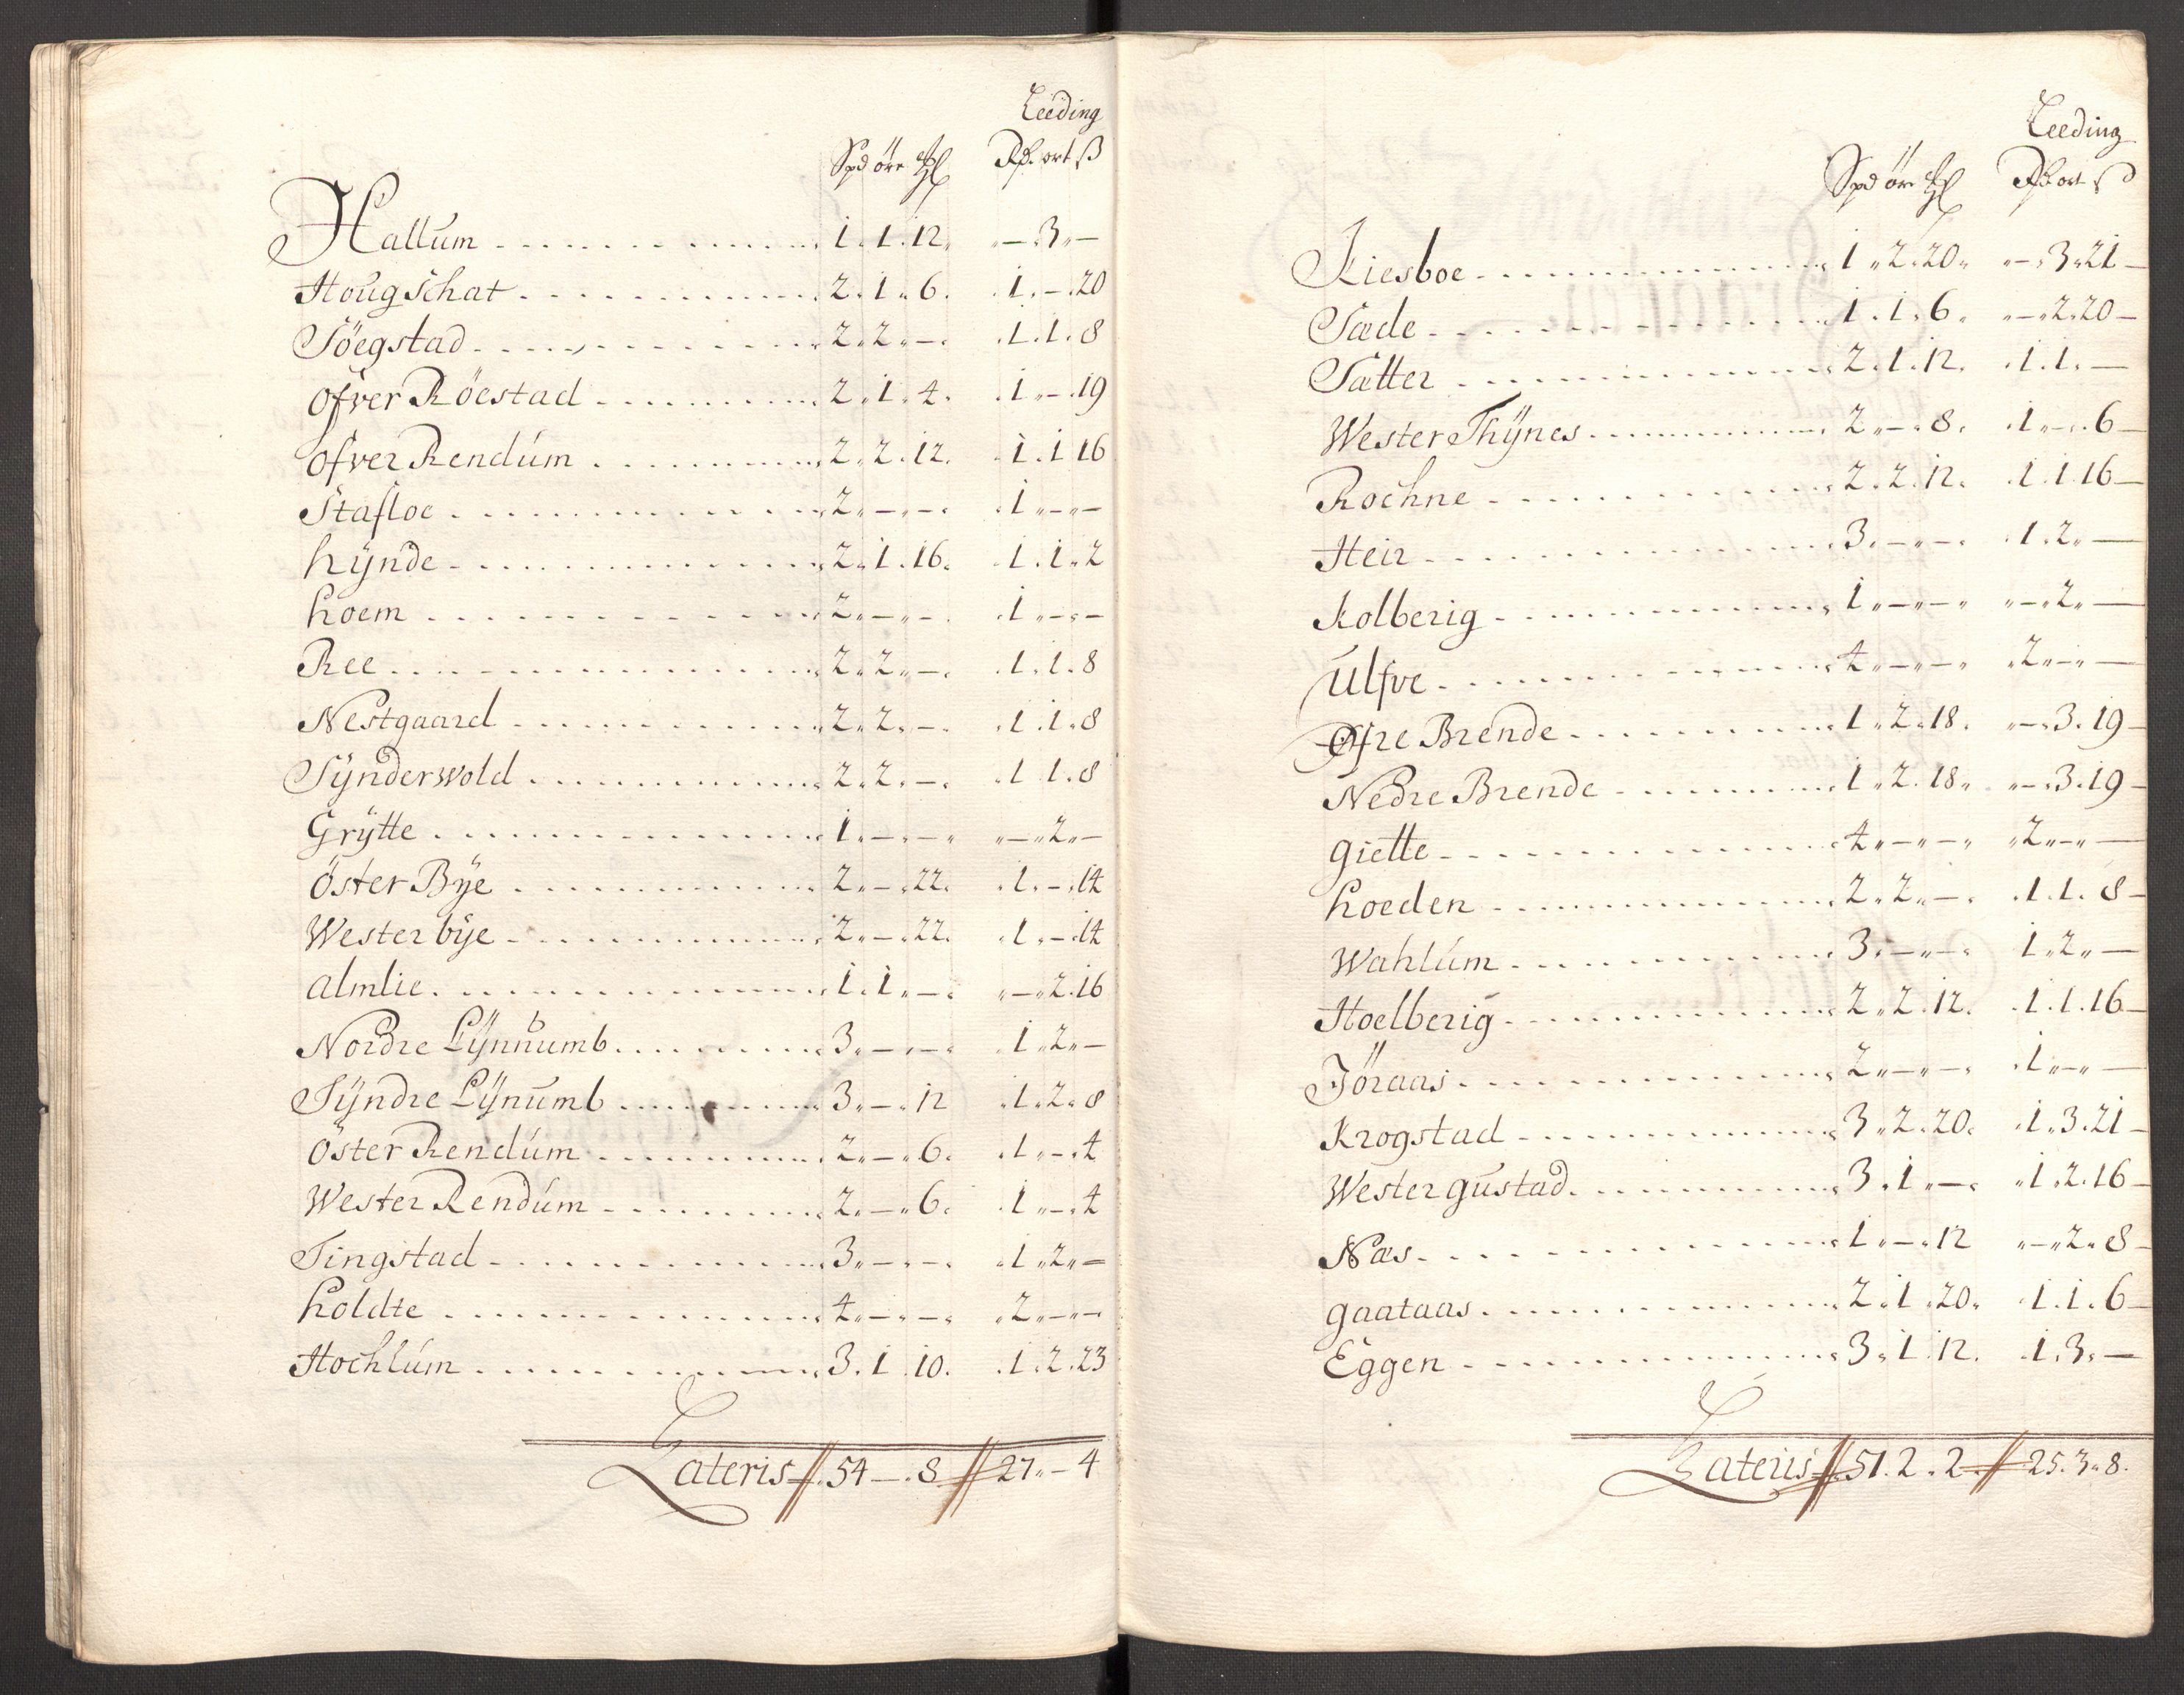 Leeding
Spd öre Rd. ort ß
Hallum 1. 1. 12. — 3. —
Hougschat 2. 1. 6. 1. — 20
Söegstad 2. 2. — 1. 1. 8
Ofver Röestad 2. 1. 4. 1. — 19
Ofver Rendúm 2. 2. 12. 1. 1 16
Stafloe 2. — — 1. — —
hÿnde 2. 1. 16. 1. 1. 2
hoem 2. — — 1. — —
Ree 2. 2. — 1. 1. 8
Nestgaard 2. 2. — 1. 1. 8
Sÿnderwold 2. 2. — 1 1. 8
Grÿtte 1. — — — 2. —
öster Bÿe 2. — 22. 1. — 14
Wester bÿe 2. — 22. 1. — 14
almlie 1. 1. — — 2. 16
Nordre Lÿnnumb 3. — — 1. 2. —
Sÿndre Lÿnumb 3. — 12 1. 2. 8
Öster Rendúm 2. — 6. 1. — 4
Wester Rendúm 2. — 6. 1. — 4
Tingstad 3. — — 1. 2. —
holdte 4. — — 2. — —
Hochlúm 3. 1 10. 1. 2. 23
Lateris 54 — 8 27. — 4
Leeding
Spd öre Rd ort ß
Kiesboe 1. 2. 20. — 3. 21 —
Sæde 1. 1. 6. — 2. 20 —
Sætter 2. 1. 12. 1. 1. —
Wester Thÿnes 2. — 8. 1. — 6 —
Rochne 2. 2. 12. 1. 1. 16 —
Heir 3. — — 1. 2. —
Kolberig 1. — — — 2. —
Ulfve 4. — — 2. — —
Øfre Brende 1. 2. 18. — 3. 19 —
Nedre Brende 1. 2. 18. — 3. 19 —
giette 4. — — 2. — —
hoeden 2. 2. — 1. 1. 8 —
Wahlúm 3. — — 1. 2. —
Hoelberig 2. 2. 12. 1. 1. 16 —
Jöraas 2. — — 1. — —
Krogstad 3. 2. 20. 1. 3. 21 —
Wester gustad 3. 1. — 1. 2. 16 —
Næs 1. — 12 — 2. 8 —
gaataas 2. 1. 20. 1. 1. 6 —
Eggen 3. 1. 12. 1. 3. —
Lateris 51. 2. 2 25. 3. 8.